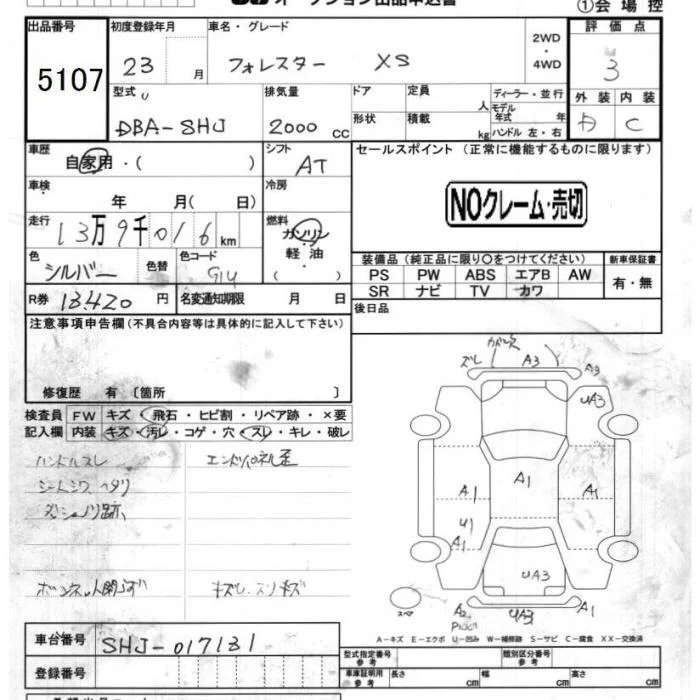 オークション出品申込書
①会場控
出品番号 5107
初度登録年月 23 月
車名・グレード フォレスター XS
2WD・4WD
評価点 3
型式 DBA-SHJ
排気量 2000 CC
ドア 形状
定員 人 積載 kg
ディーラー・並行
モデル年式 年
ハンドル 左・右
外装 内装 C
車歴 自家用・( )
シフト AT
セールスポイント (正常に機能するものに限ります)
車検 年 月( 日)
冷房
NOクレーム・売切
走行 13万9千016km
燃料 ガソリン・軽油 ( )
色 シルバー 色替 色コード G1U
装備品(純正品に限り○をつけてください) 新車保証書
PS PW ABS エアB AW 有・無
SR ナビ TV カワ
R券 13420円 名変通知期限 月 日
後日品
注意事項申告欄(不具合内容等は具体的に記入して下さい)
修復歴 有〔箇所 〕
検査員 FW キズ・飛石・ヒビ割・リペア跡・×要
記入欄 内装 キズ・汚レ・コゲ・穴・スレ・キレ・破レ
ハンドルスレ
シートシワ ヘタリ
ダッシュノリ跡
ズレ A3 A3
UA3
A1 A1 A1
U1
A1
UA3
スペア A2 A3
A-キズ E-エクボ U-凹み W-補修跡 S-サビ C-腐食 XX-交換済
車台番号 SHJ-017131
登録番号
型式指定番号 参考 類別区分番号 参考
車庫証明用 参考 長さ cm 幅 cm 高さ cm